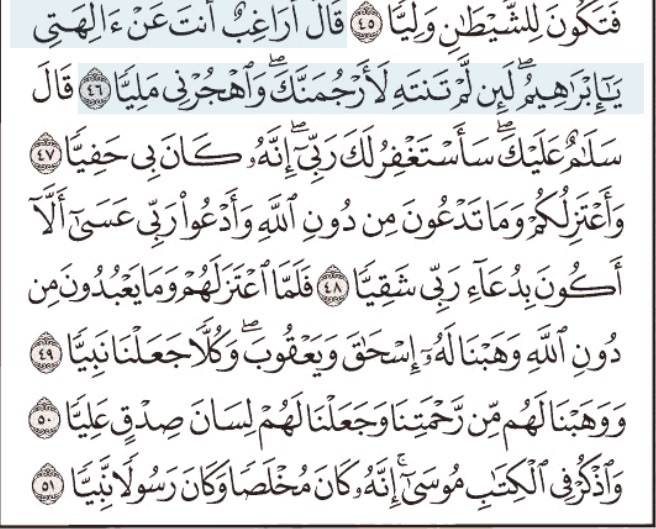 فَتَكُونَ لِلشَّيْطَٰنِ وَلِيًّا ٤٥ قَالَ أَرَاغِبٌ أَنتَ عَنْ ءَالِهَتِى
يَٰٓإِبْرَٰهِيمُ ۖ لَئِن لَّمْ تَنتَهِ لَأَرْجُمَنَّكَ ۖ وَٱهْجُرْنِى مَلِيًّا ٤٦ قَالَ
سَلَٰمٌ عَلَيْكَ ۖ سَأَسْتَغْفِرُ لَكَ رَبِّىٓ ۖ إِنَّهُۥ كَانَ بِى حَفِيًّا ٤٧
وَأَعْتَزِلُكُمْ وَمَا تَدْعُونَ مِن دُونِ ٱللَّهِ وَأَدْعُوا۟ رَبِّى عَسَىٰٓ أَلَّآ
أَكُونَ بِدُعَآءِ رَبِّى شَقِيًّا ٤٨ فَلَمَّا ٱعْتَزَلَهُمْ وَمَا يَعْبُدُونَ مِن
دُونِ ٱللَّهِ وَهَبْنَا لَهُۥٓ إِسْحَٰقَ وَيَعْقُوبَ ۖ وَكُلًّا جَعَلْنَا نَبِيًّا ٤٩
وَوَهَبْنَا لَهُم مِّن رَّحْمَتِنَا وَجَعَلْنَا لَهُمْ لِسَانَ صِدْقٍ عَلِيًّا ٥٠
وَٱذْكُرْ فِى ٱلْكِتَٰبِ مُوسَىٰٓ ۚ إِنَّهُۥ كَانَ مُخْلَصًا وَكَانَ رَسُولًا نَّبِيًّا ٥١